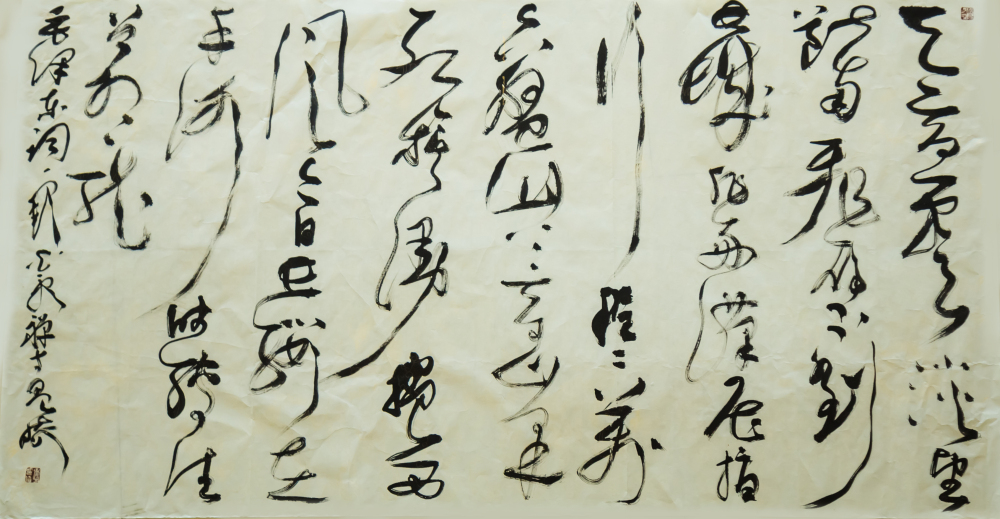 天高雲淡望
斷南飛雁不到
長城非好漢屈指
行程二萬
六盤山上高峰
紅旗漫捲西
風今日長纓在
手何時縛住
蒼龍
毛澤東詞